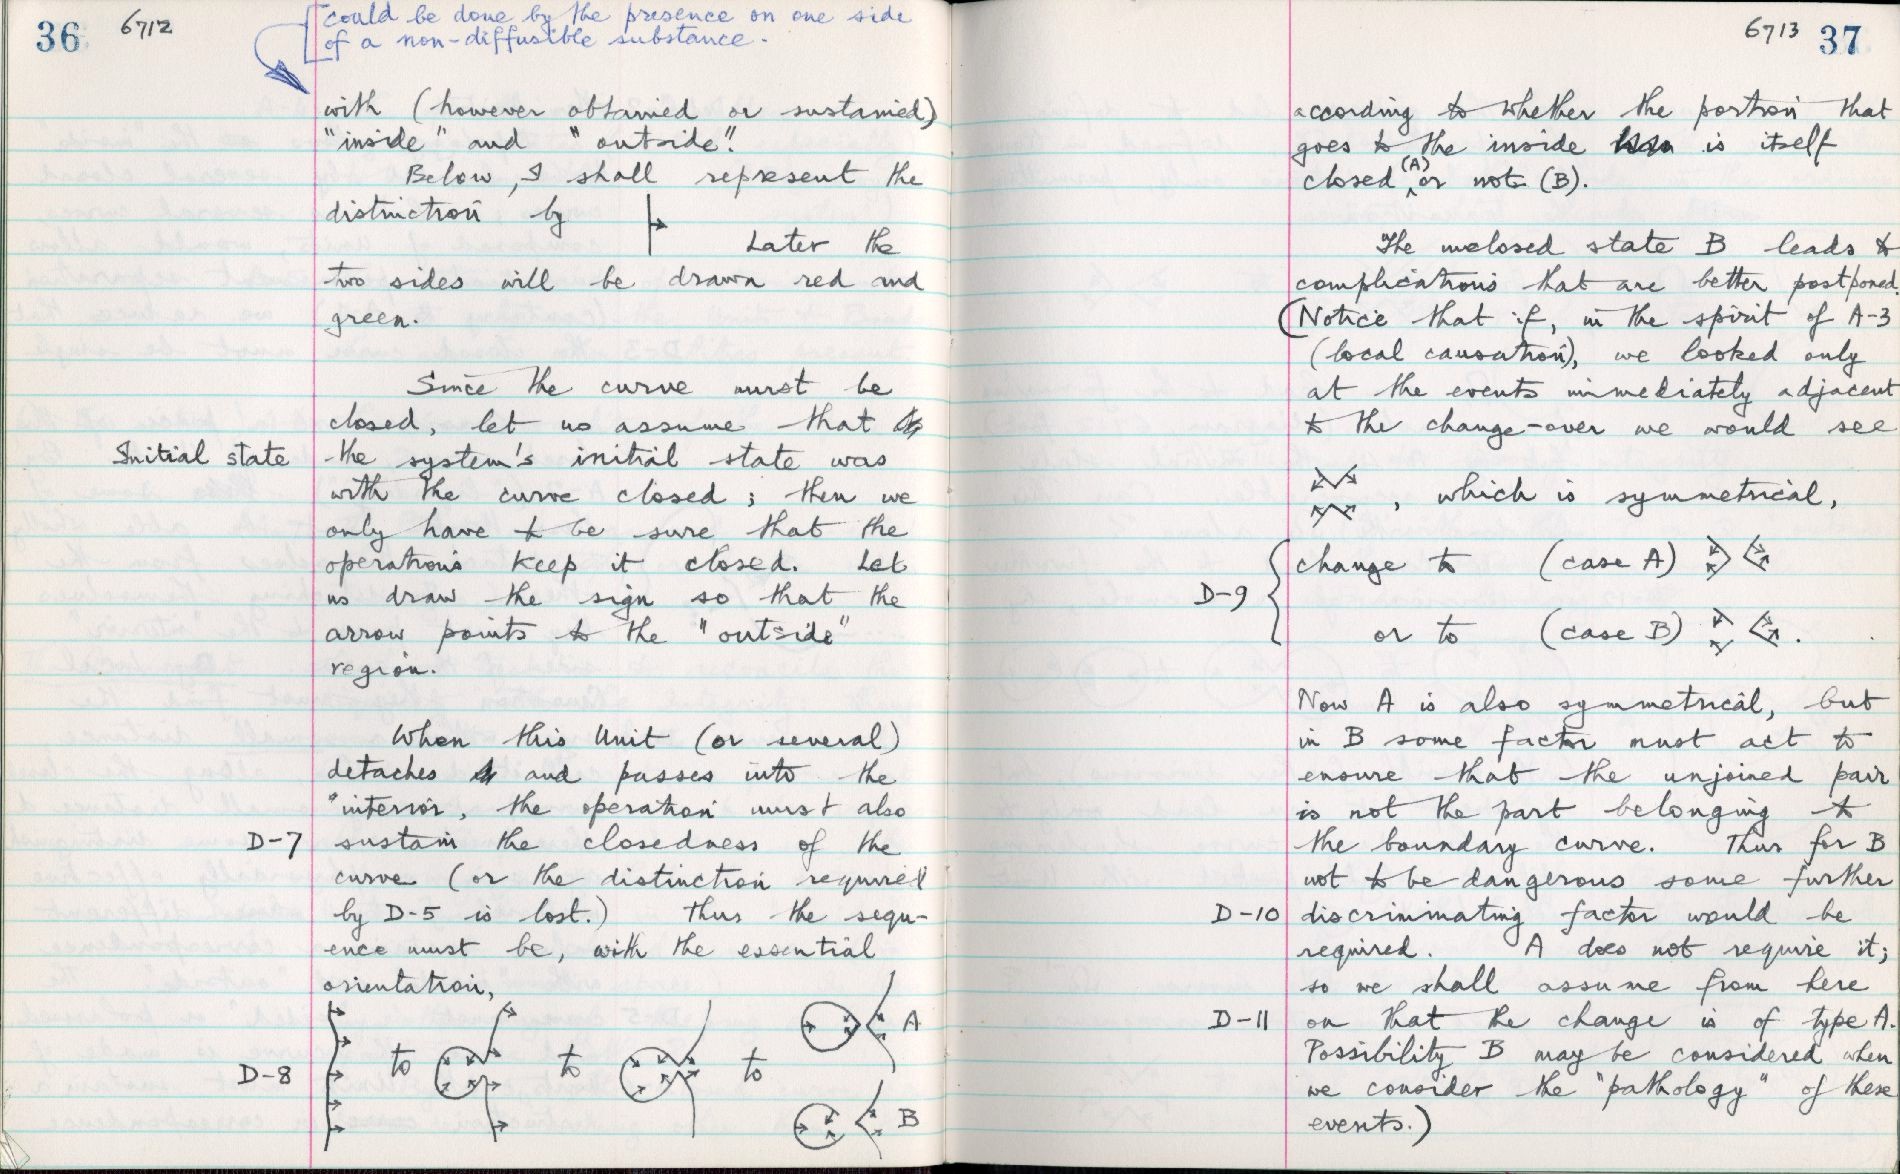 36 6712
could be done by the presence on one side
of a non-diffusible substance.
with (however obtained or sustained)
"inside" and "outside".
Below, I shall represent the
distinction by
Later the
two sides will be drawn red and
green.
Since the curve must be
closed, let us assume that
Initial state the system's initial state was
with the curve closed; then we
only have to be sure that the
operations keep it closed. Let
us draw the sign so that the
arrow points to the "outside"
region.
When this Unit (or several)
detaches and passes into the
"interior, the operation must also
D-7 sustain the closedness of the
curve (or the distinction required
by D-5 is lost.) Thus the sequ-
ence must be, with the essential
orientation,
D-8 to to to A
B
6713 37
according to whether the portion that
goes to the inside is itself
closed (A) or not (B).
The unclosed state B leads to
complications that are better postponed.
(Notice that if, in the spirit of A-3
(local causation), we looked only
at the events immediately adjacent
to the change-over we would see
, which is symmetrical,
D-9 change to (case A)
or to (case B) .
Now A is also symmetrical, but
in B some factor must act to
ensure that the unjoined pair
is not the part belonging to
the boundary curve. Thus for B
not to be dangerous some further
D-10 discriminating factor would be
required. A does not require it;
so we shall assume from here
D-11 on that the change is of type A.
Possibility B may be considered when
we consider the "pathology" of these
events.)